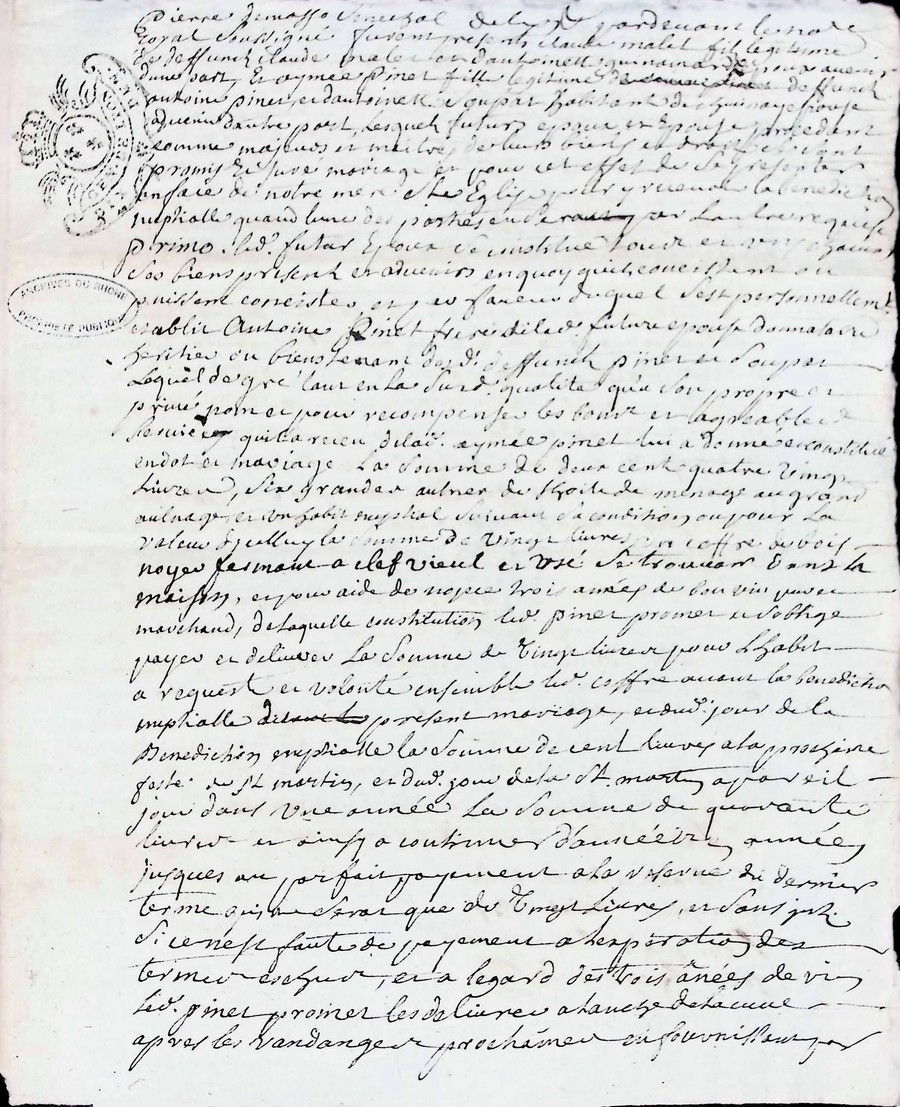 Pierre demasso Senechal de la d. pardevant le no.e
Royal Soussigné furent presents claude malet fil legitime
de deffunct claude malet et dantoinett quinar pour avenir
dune part, Et aymée pinet fille legitime de deffunct
antoine pinet, et dantoinett Soupat habitant de
advenir dautre part, Lesquels futurs epoux, et Epouse procedant
comme majeurs et maitres de leurs biens et droits, se sont
promis et juré mariage et pour cet effet de Se presenter
en face de notre mere Ste Eglise pour y recevoir la benediction
nuptialle quand lune des parties en Sera par Lautre requise
primo. led. futur Epoux Se constitue tous et uns chacuns
Ses biens presents et advenirs en quoy quils consistent ou
puissent consister, et en faveur duquel Sest personnellemt.
etablit Antoine Pinet frere de lad. future epouse donnataire
heritier ou bienstenant desd. deffuncts pinet et Soupat
Lequel de gré tant en La Susd. qualité qu'a Son propre et
privé nom et pour recompense les bons et agreables
Services quil a receu de lad. aymée pinet lui a donné et constitué
en dot et mariage La Somme de deux cent quatre vingt
Livres, Six grandes aulnes de thoile de menage au grand
aulnage, et un habit nuptial Suivant Sa condition ou pour La
valeur dicelluy la Somme de vingt livres, un coffre de bois
noyer fermant a clef vieul et usé Se trouvant dans la
maison, et pour aide de nopce trois anées de bon vin pur et
marchand, de laquelle constitution led. pinet promet et Soblige
payer et delivrer La Somme de vingt livres pour Lhabit
a requeste et volonté ensemble led. coffre avant la benediction
nuptialle present mariage, et dud. jour de la
Benediction nuptialle la Somme de cent livres a la prochaine
feste de St martin, et dud. jour de la St. martin a pareil
jour dans une année La Somme de quarante
livres et ainsy a continuer d'année en année
jusques au parfait payement a la reserve du dernier
terme qui ne Sera que de vingt Livres, et Sans int.
Si ce n'est faute de payement a lexpiration des
termes escheus, et a legard des trois ânées de vin
led. pinet promet les delivrer a lanche de la cuve
apres les vandanges prochaines en fournissant par
ARCHIVES DU RHONE
PROPRIETE PUBLIQUE